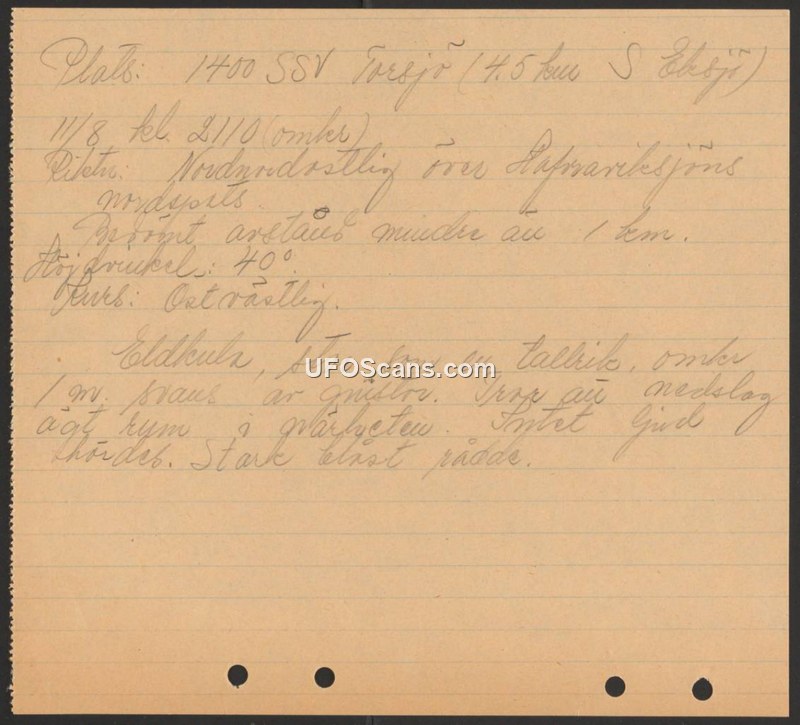 Plats: 1400 SSV Torsjö (4.5 km S Eksjö)
11/8 kl. 2110 (omkr)
Riktn: Nordnordostlig över Hafsraviksjöns
nordspets.
Bedömt avstånd mindre än 1 km.
Höjdvinkel: 40°.
Kurs: Ostvästlig.
Eldkula, stor som en tallrik, omkr
UFOScans.com
1 m. svans av gnistor. Tror att nedslag
ägt rum i närheten. Intet ljud
hördes. Stark blåst rådde.